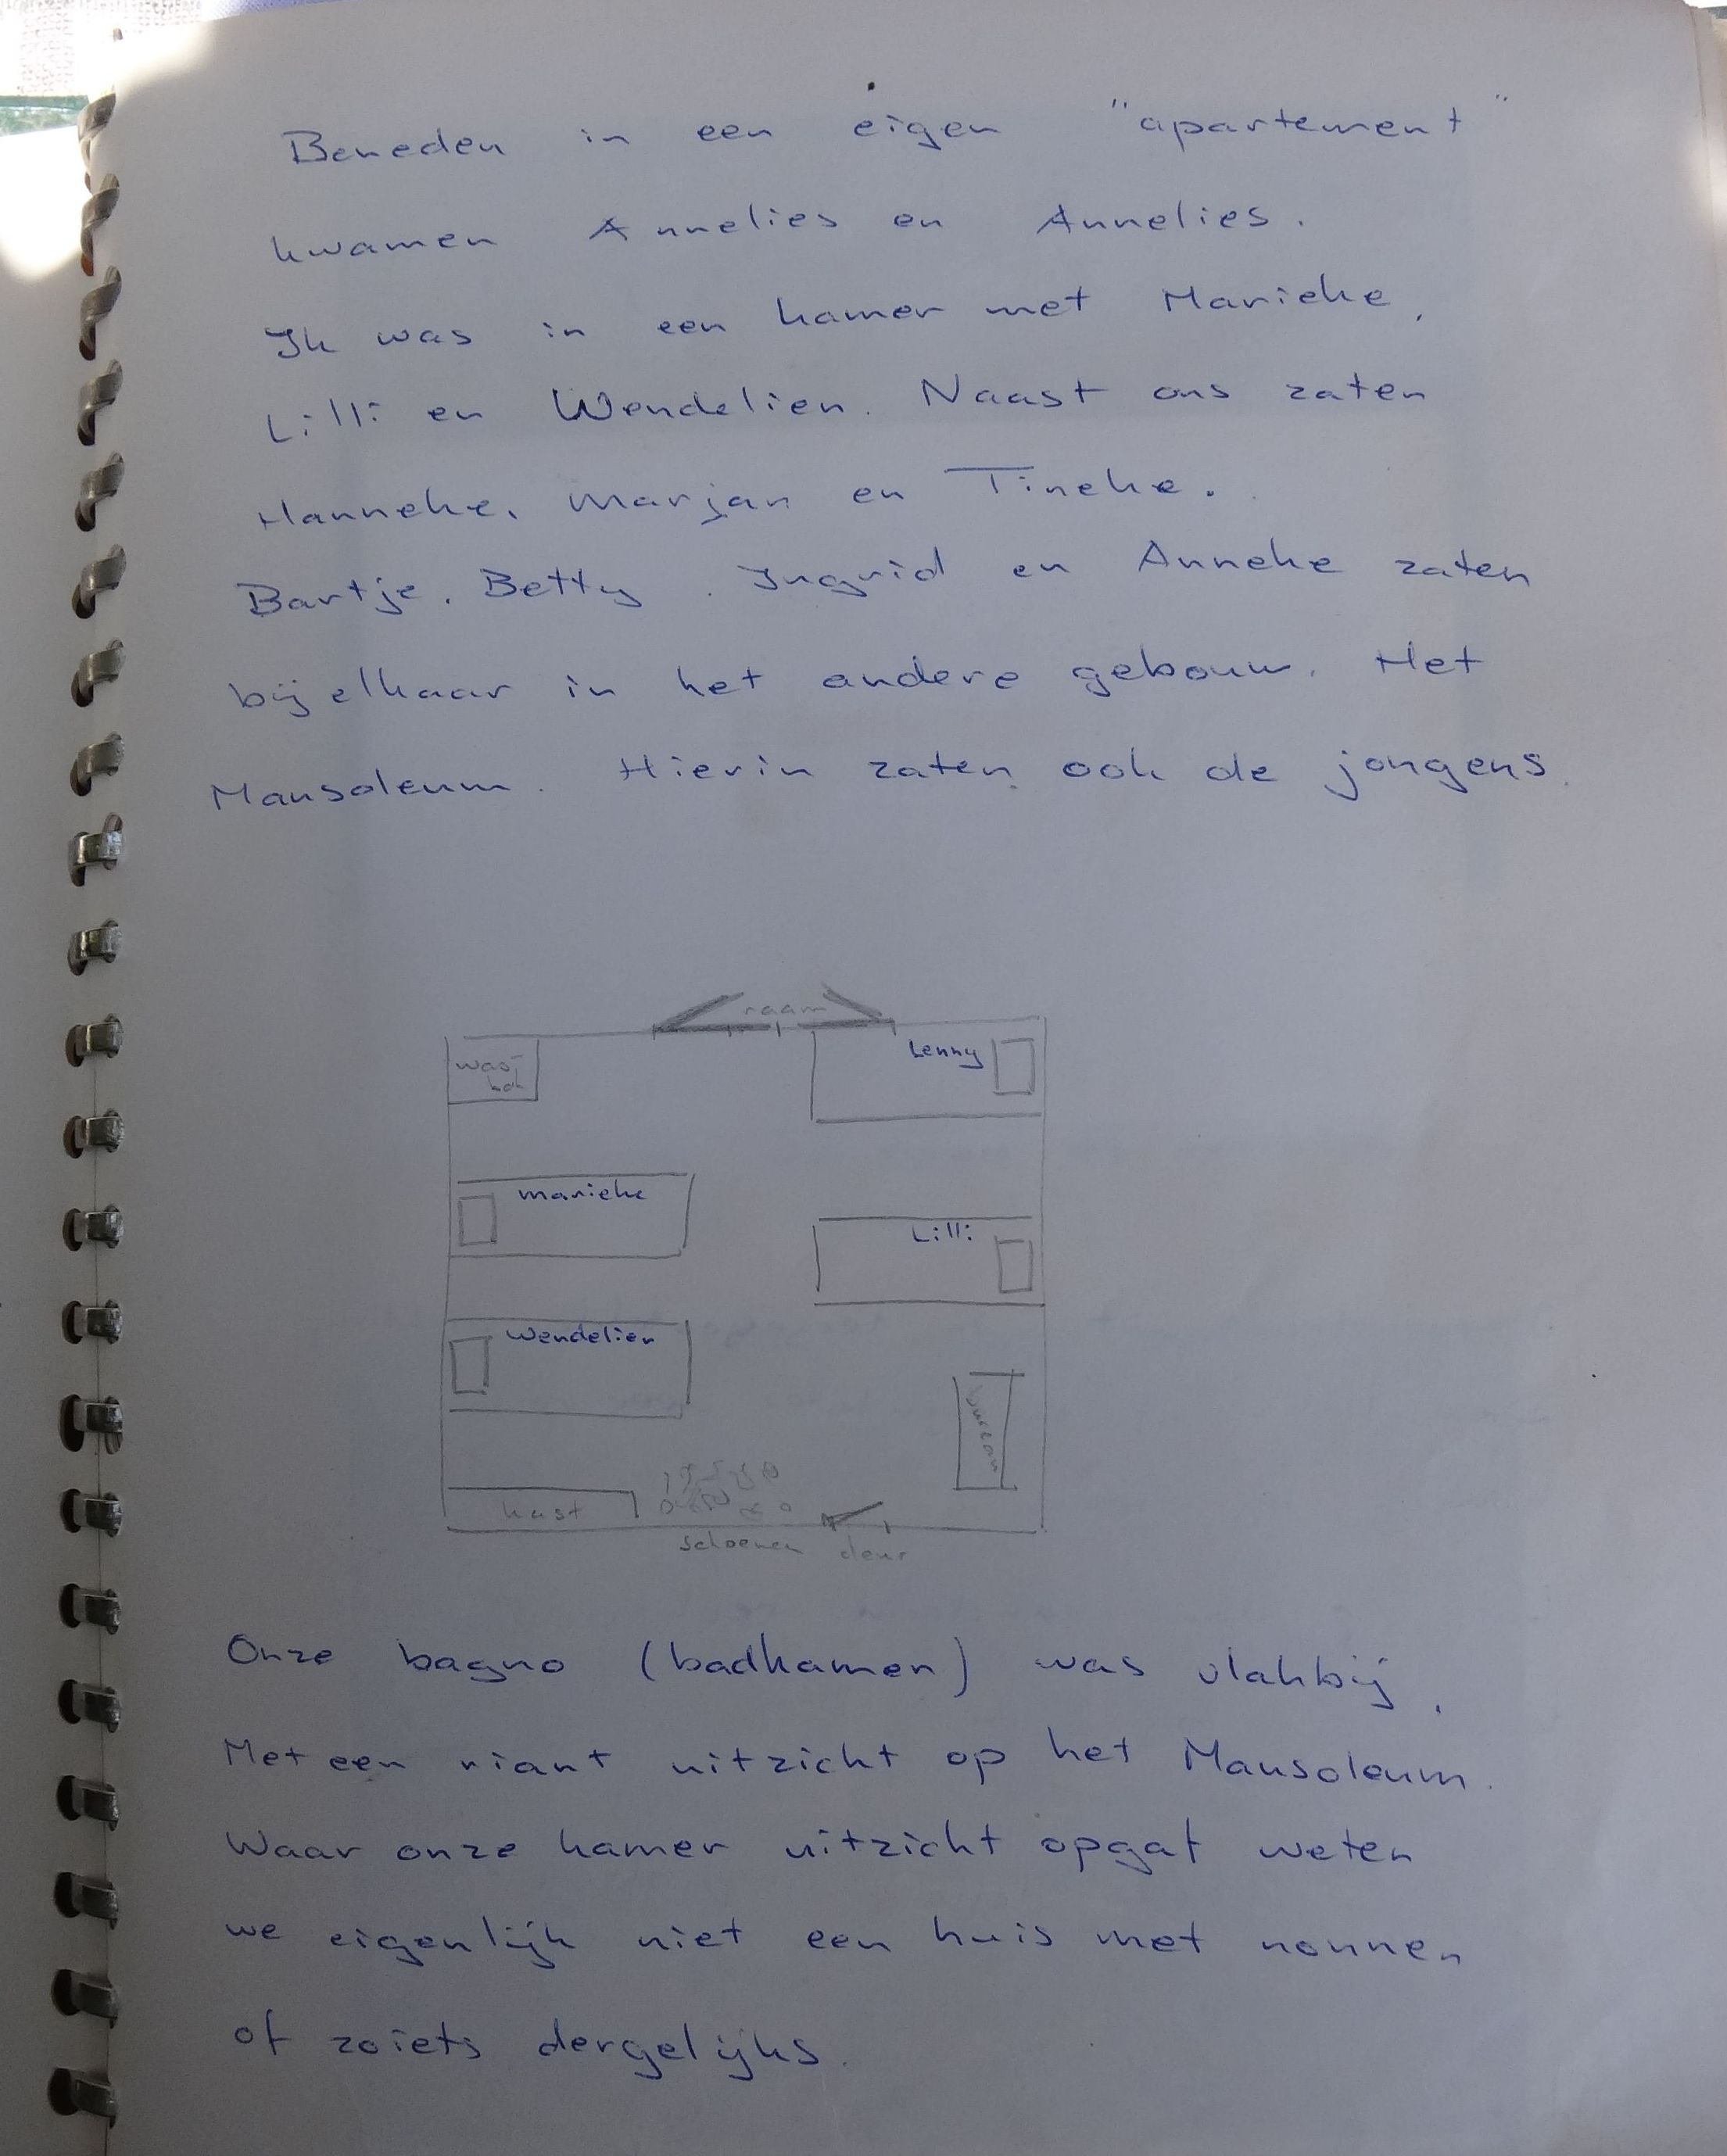 Beneden in een eigen "apartement"
kwamen Annelies en Annelies.
Ik was in een kamer met Marieke,
Lilli en Wendelien. Naast ons zaten
Hanneke, Marjan en Tineke.
Bartje, Betty, Ingrid en Anneke zaten
bij elkaar in het andere gebouw. Het
Mausoleum. Hierin zaten ook de jongens.
raam
was-
bak
Lenny
Marieke
Lilli
Wendelien
bureau
kast
schoenen deur
Onze bagno (badkamer) was vlakbij.
Met een riant uitzicht op het Mausoleum.
Waar onze kamer uitzicht opgaf weten
we eigenlijk niet een huis met nonnen
of zoiets dergelijks.